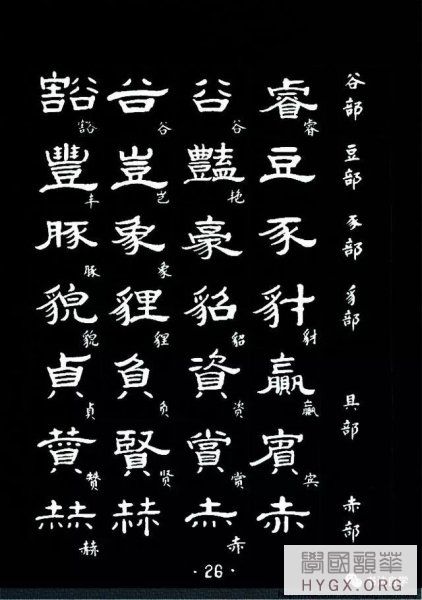 谷部 睿 睿 谷 谷 谷 谷 豁 豁
豆部 豆 豔 艳 豈 岂 豐 丰
豕部 豕 豪 象 象 豚 豚
豸部 豺 豺 貂 貂 貍 貍 貌 貌
貝部 贏 赢 資 资 負 负 貞 贞
賓 宾 賞 赏 賢 贤 贊 赞
赤部 赤 赤 赤 赫 赫 赫
·26·
學國韻華
HYGX.ORG